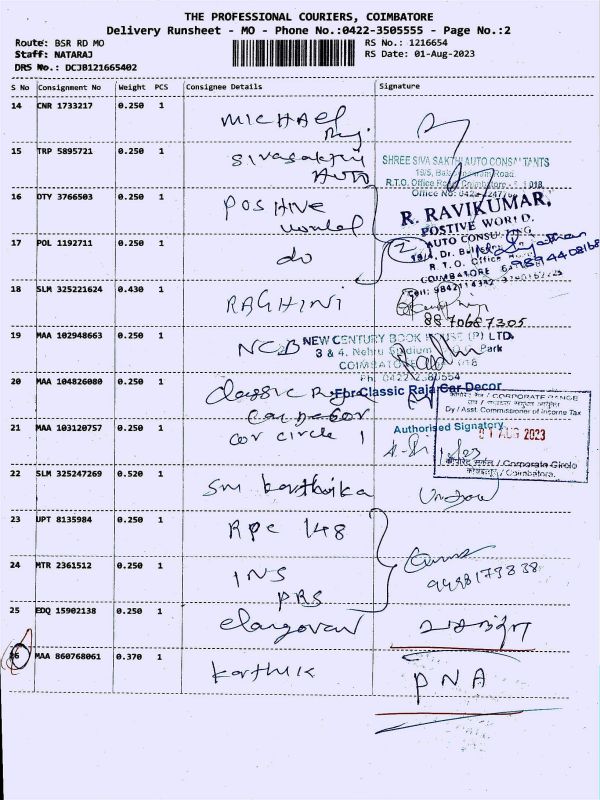 THE PROFESSIONAL COURIERS, COIMBATORE
Delivery Runsheet - MO - Phone No.:0422-3505555 - Page No.:2
Route: BSR RD MO
RS No.: 1216654
Staff: NATARAJ
RS Date: 01-Aug-2023
DRS No.: DCJB121665402
S No Consignment No Weight PCS Consignee Details Signature
14 CNR 1733217 0.250 1
MICHAEL Raj.
15 TRP 5895721 0.250 1
Sivasakthi Auto
SHREE SIVA SAKTHI AUTO CONSULTANTS
R.T.O. Office Road, Coimbatore
16 DTY 3766503 0.250 1
Positive world
R. RAVIKUMAR,
POSTIVE WORLD.
AUTO CONSULTING
17 POL 1192711 0.250 1
do
2
R. T. O. Office
COIMBATORE
9894408168
18 SLM 325221624 0.430 1
RAGHINI
8870687305
19 MAA 102948663 0.250 1
NCB
NEW CENTURY BOOK HOUSE (P) LTD.
3 & 4, Nehru Stadium Park
COIMBATORE
Ph: 0422-2380554
20 MAA 104826080 0.250 1
Classic Raja
Car Decor
For Classic Raja Car Decor
Authorised Signatory
21 MAA 103120757 0.250 1
cor circle 1
CORPORATE RANGE
Dy / Asst. Commissioner of Income Tax
01 AUG 2023
Corporate Circle
Coimbatore.
22 SLM 325247269 0.520 1
Sri karthika
23 UPT 8135984 0.250 1
RPC 148
24 MTR 2361512 0.250 1
INS
PRS
9998173338
25 EDQ 15902138 0.250 1
elangovan
26 MAA 860768061 0.370 1
karthik
PNA